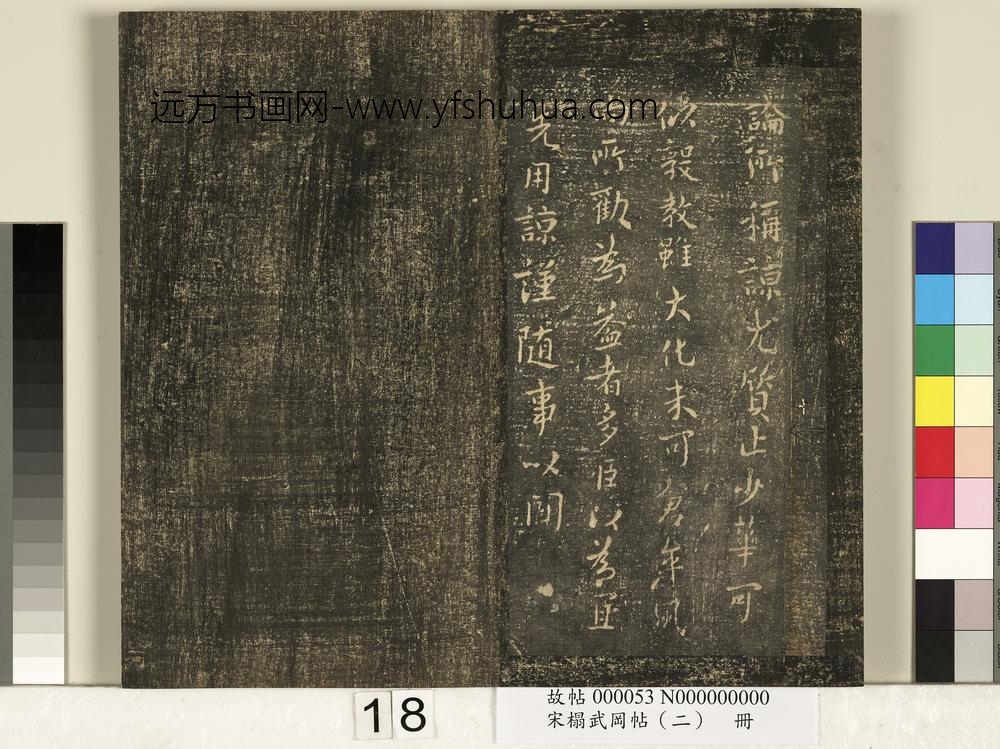 远方书画网-www.yfshuhua.com
論所稱諒尤質止少華可
以毅教雖大化未可君卒風
所勸為益者多臣以為宜
先用諒謹隨事以聞
18
故帖 000053 N000000000
宋榻武岡帖（二） 冊